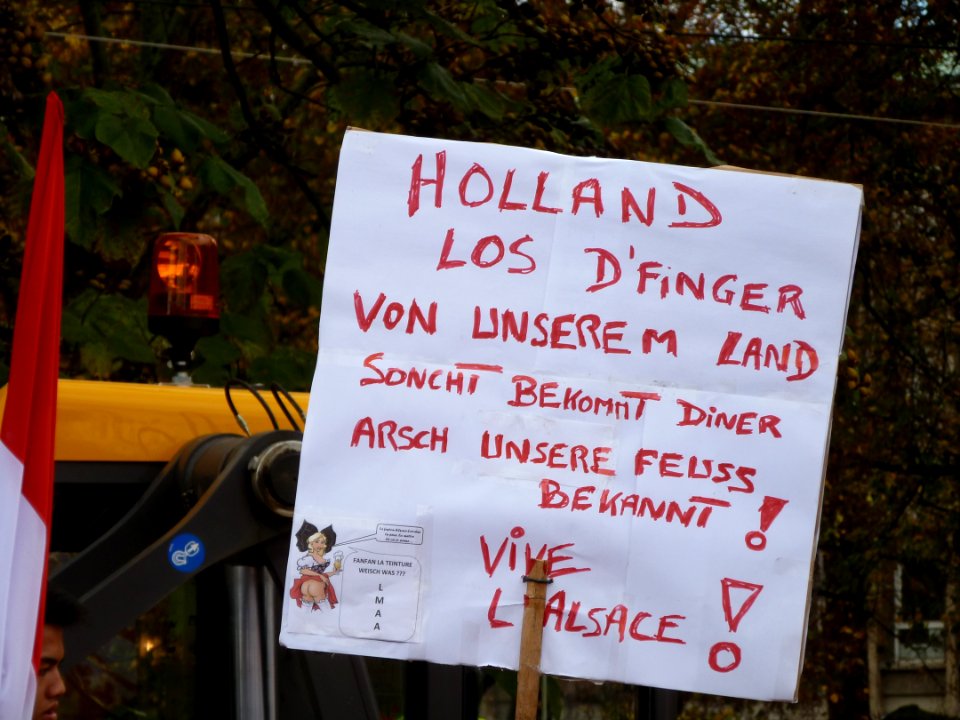 HOLLAND
LOS D'FINGER
VON UNSEREM LAND
SONCHT BEKOMMT DINER
ARSCH UNSERE FEUSS
BEKANNT !
VIVE
L'ALSACE !
FANFAN LA TEINTURE
WEISCH WAS ???
L
M
A
A